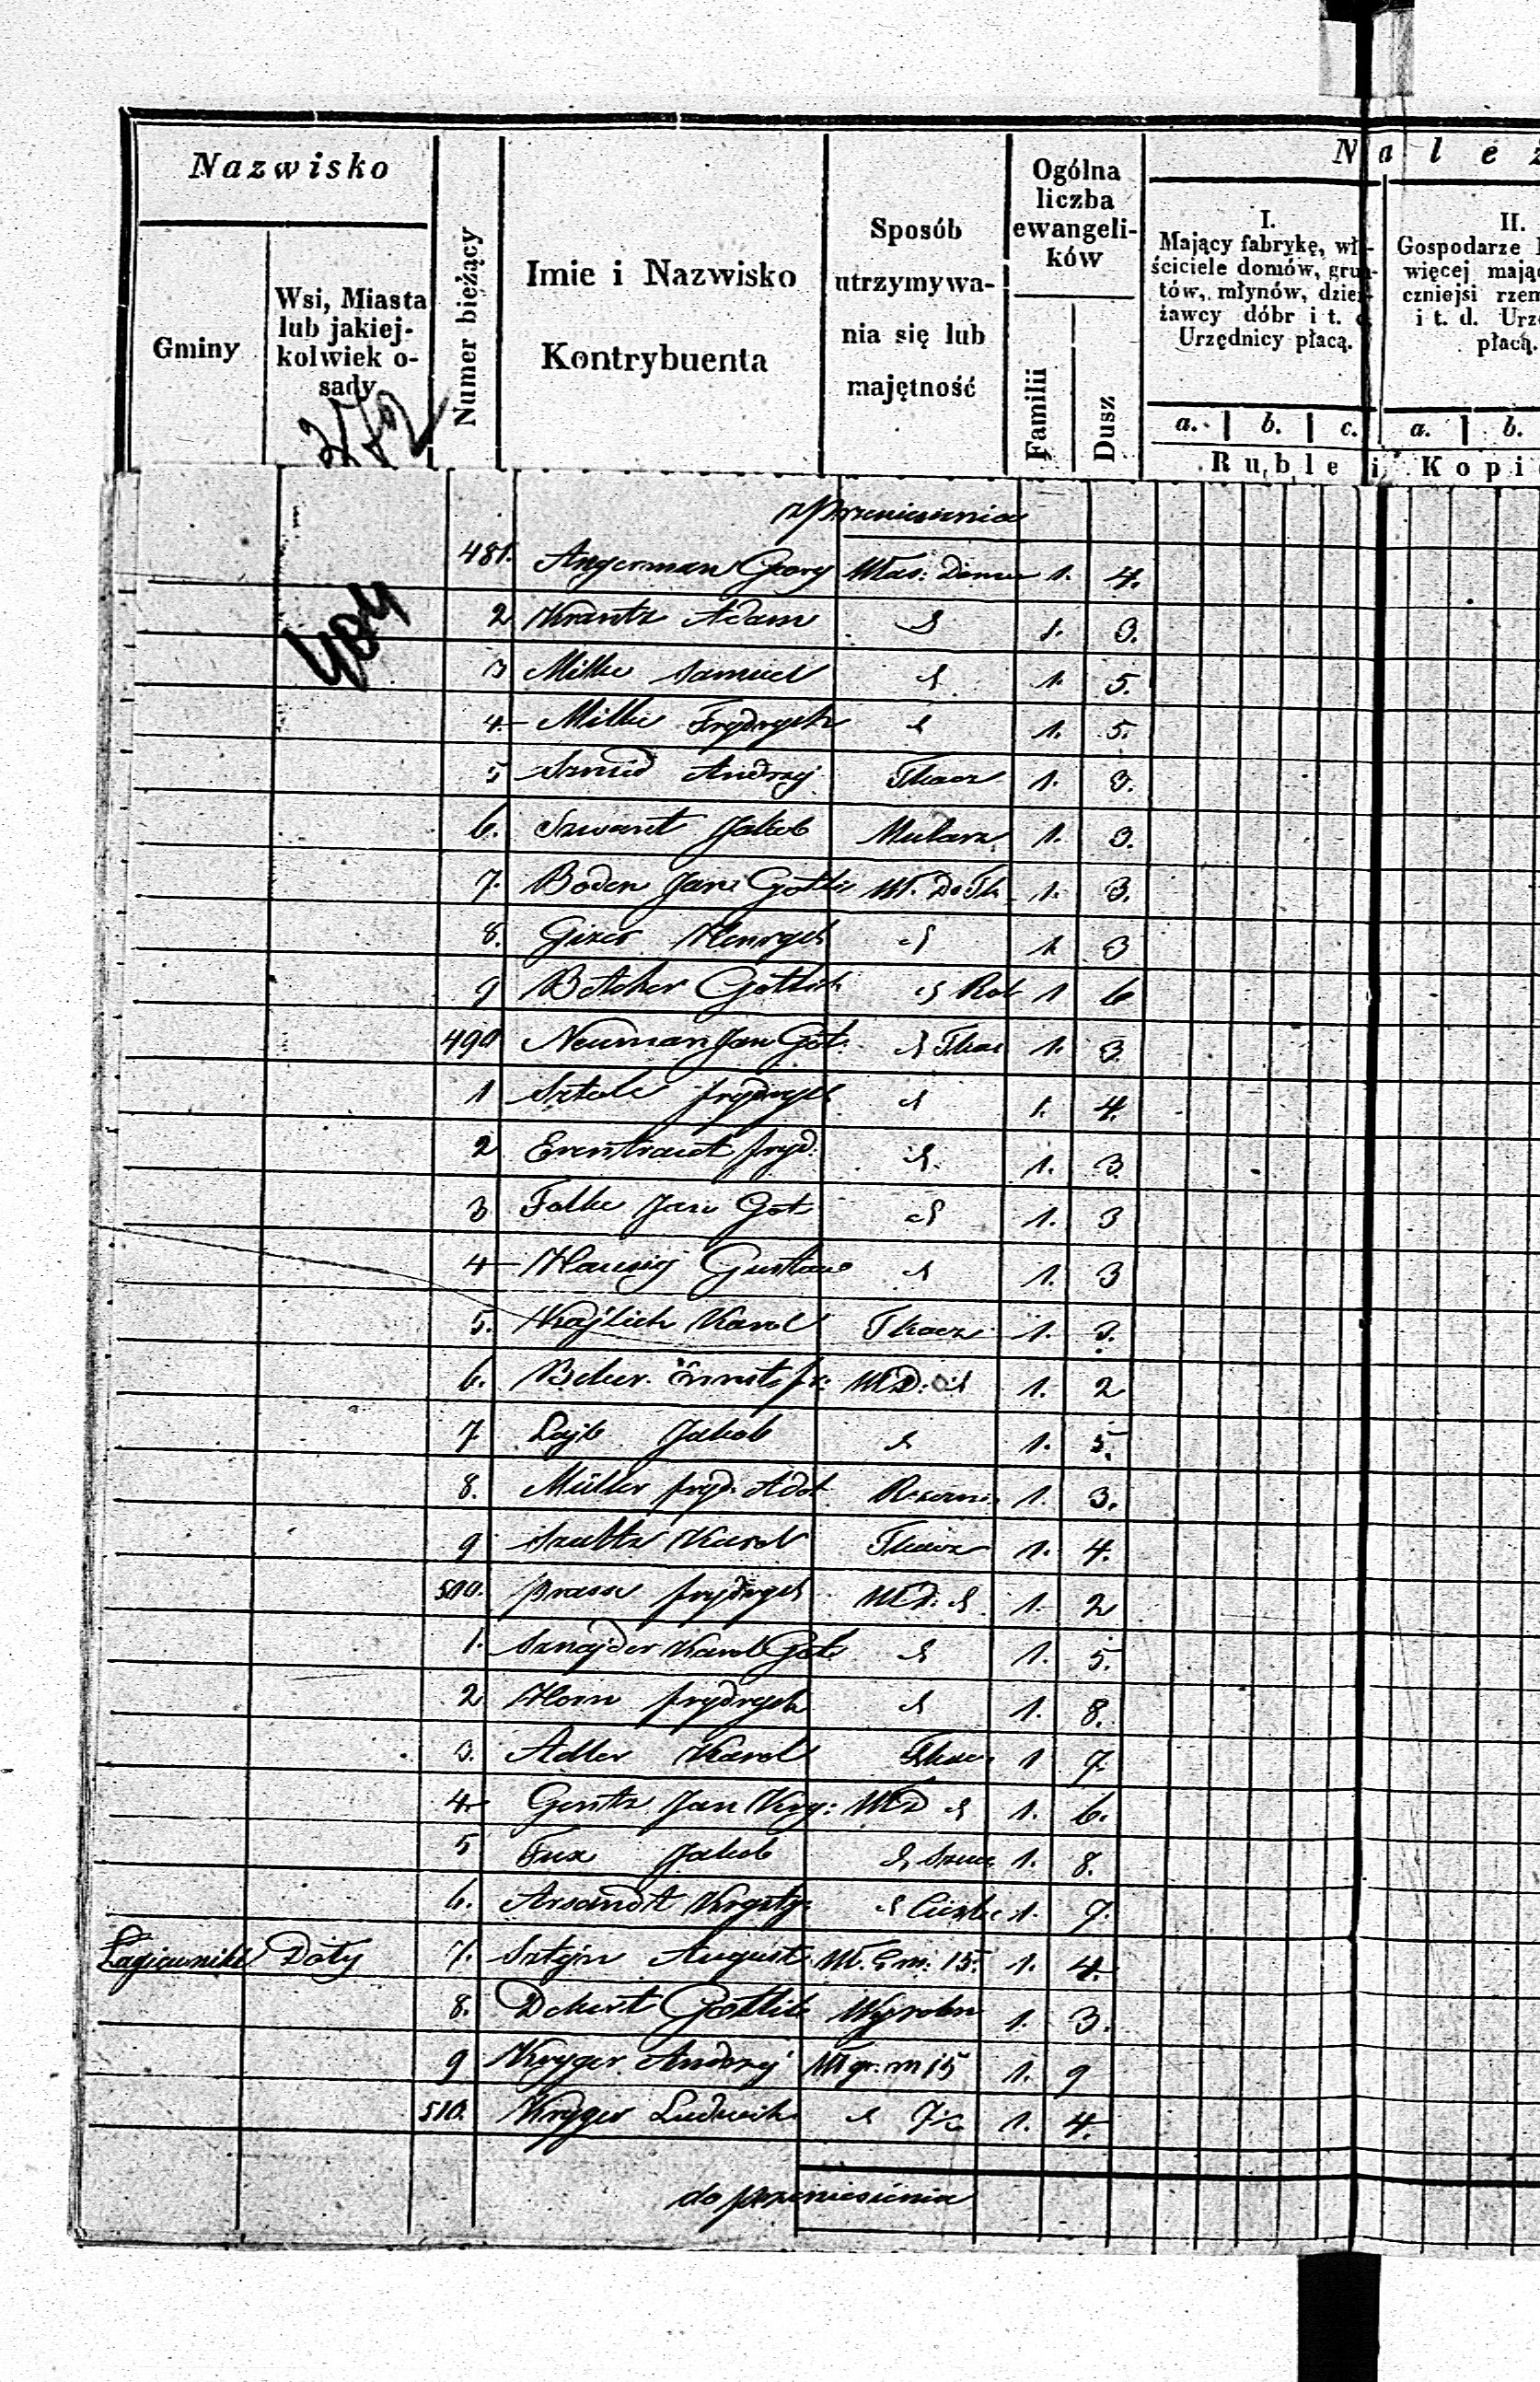 Nazwisko
Gminy
Wsi, Miasta lub jakiej-kolwiek o-sady
Numer bieżący
Imie i Nazwisko Kontrybuenta
Sposób utrzymywa-nia się lub majętność
Ogólna liczba ewangeli-ków
Familii
Dusz
Należ
I.
Mający fabrykę, wł-
ściciele domów, grun-
tów, młynów, dzier-
żawcy dóbr i t.
Urzędnicy płacą.
II.
Gospodarze
więcej mają
czniejsi rzem
i t. d. Urzę
płacą.
a. b. c. a. b.
Ruble i Kopi
z przeniesienia
481. Angerman Georg Włas: Domu 1. 4.
2 Krantz Adam d 1. 3.
3 Milke Samuel d 1. 5.
4 Milke Frydrych d 1. 5.
5 Szmid Andrzej Tkacz 1. 3.
6. Szwant Jakob Mularz 1. 3.
7. Boden Jan Gottli Wł. Do Tk 1. 3.
8. Gizer Henrych d 1 3
9 Betcher Gottlieb d Rob 1 6
490 Neuman Jan Got: d Tkac 1. 3
1 Sztole Frydrych d 1. 4.
2 Erentraut Fryd. d 1. 3
3 Falke Jan Got d 1. 3
4 Hausig Gustaw d 1. 3
5. Krajlich Karol Tkacz 1. 3.
6. Beker Ernst Fr: Wł D: d 1. 2
7 Lajb Jakob d 1. 5.
8. Müller Fryd. Adol 1. 3.
9 Szultz Karol Tkacz 1. 4.
500. Frydrych Wł D: d 1. 2
1. Sznajder Karol Got d 1. 5.
2 Horn Frydrych d 1. 8.
3. Adler Karol Tkacz 1 7.
4. Gentz Jan Kry: Wł D d 1. 6.
5 Fux Jakob d Szew 1. 8.
6. Arsandt Krysty: d Cieśla 1. 7.
Łagiewniki Doły 7. Sztejn August Wł. G m: 15. 1. 4.
8. Dekert Gottlib Wyrobn 1. 3.
9 Kryger Andrzej Wł gr. m 15 1. 9
510. Kryger Ludwik d 7½ 1. 4.
do przeniesienia